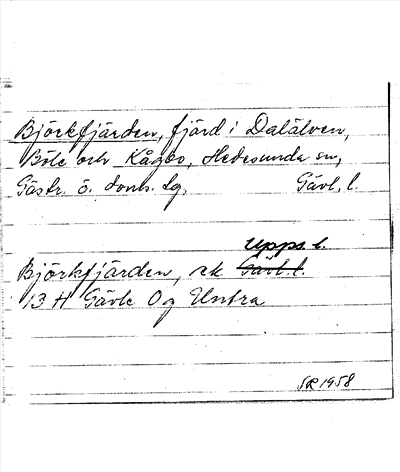 Björkfjärden, fjärd i Dalälven,
Böle och Kågbo, Hedesunda sn,
Gästr. ö. doms. tg, Gävl. l.
Upps. l.
Björkfjärden, ek Gävl. l.
13 H Gävle O g Untra
SR 1958